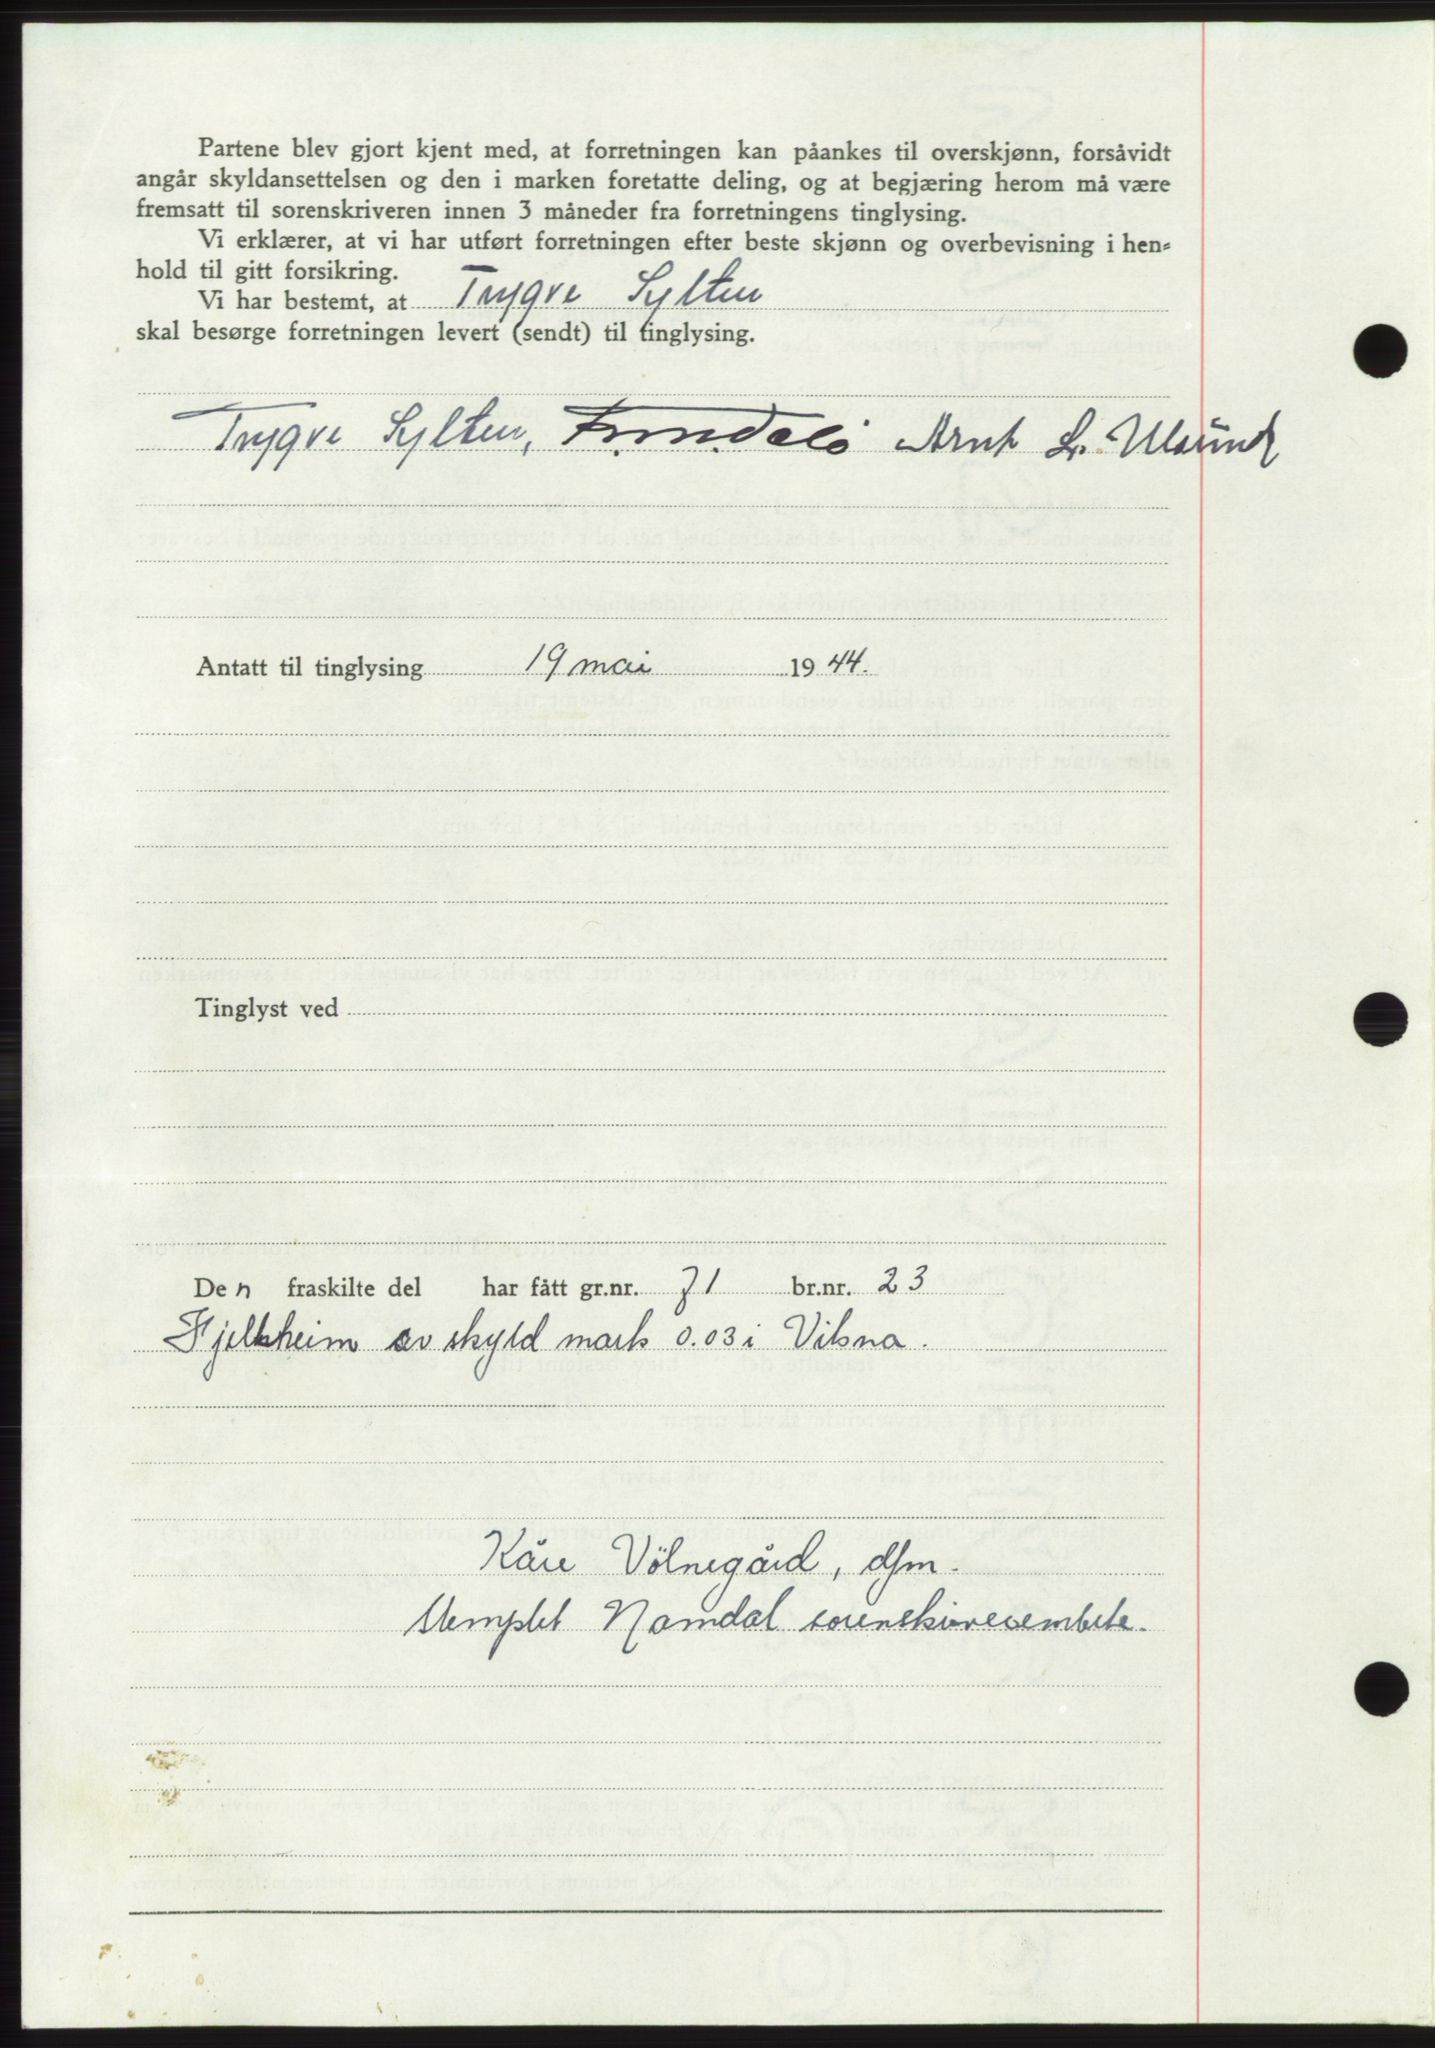 Partene blev gjort kjent med, at forretningen kan påankes til overskjønn, forsåvidt
angår skyldansettelsen og den i marken foretatte deling, og at begjæring herom må være
fremsatt til sorenskriveren innen 3 måneder fra forretningens tinglysing.
Vi erklærer, at vi har utført forretningen efter beste skjønn og overbevisning i hen-
hold til gitt forsikring.
Vi har bestemt, at Trygve Sylten
skal besørge forretningen levert (sendt) til tinglysing.
Trygve Sylten, Arnt L.
Antatt til tinglysing 19 mai 1944.
Tinglyst ved
Den fraskilte del har fått gr.nr. 71 br.nr. 23
Fjellheim av skyld mark 0.03 i Viksna.
Kåre Völnegård, dfm.
Stemplet Namdal sorenskriverembete.